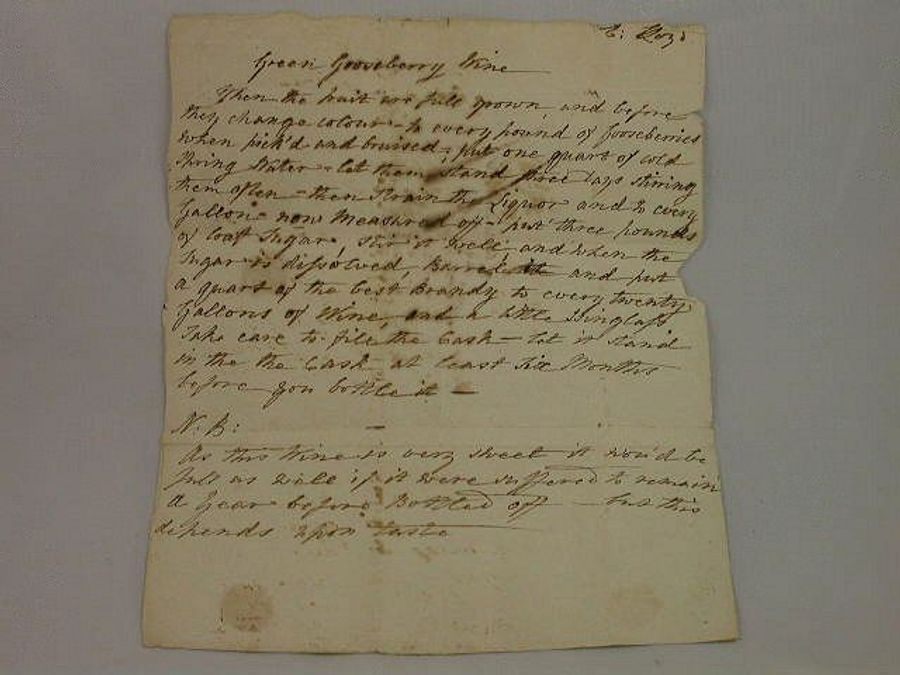 E: Lloyd
Green Gooseberry Wine
When the fruit are full grown, and before
they change colour - to every pound of Gooseberries
when pick'd and bruised, put one quart of cold
Spring Water - let them stand three days stirring
them often - then strain the Liquor and to every
Gallon now Measured off - put three pounds
of Loaf Sugar, stir it well, and when the
Sugar is dissolved, Barrel it and put
a quart of the best Brandy to every twenty
Gallons of Wine, and a little Isinglass
Take care to fill the Cask - let it stand
in the the Cask at least Six Months
before you bottle it -
N. B: -
As this Wine is very sweet it wou'd be
full as well if it were suffered to remain
a Year before Bottled off - but this
depends upon taste